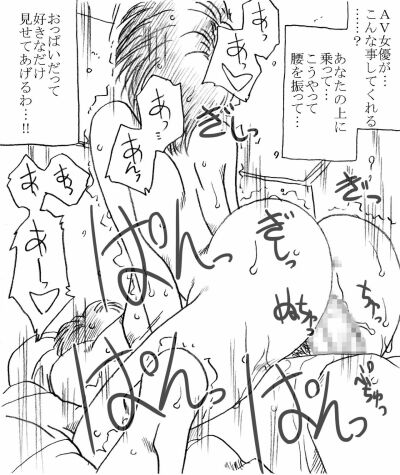 AV女優が…
こんな事してくれる
……？
あなたの上に
乗って…
こうやって
腰を振って…
おっぱいだって
好きなだけ
見せてあげるわ…!!
あっ
あっ♡
あっ
あっ
あっ
あっ
あー♡
ぎしっ
ぎしっ
ぎしっ
ぱんっ
ぱんっ
ぱんっ
ぬちゅっ
ちゅっ